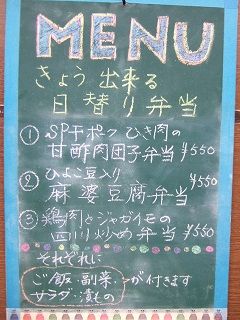 MENU
きょう出来る
日替り弁当
① SPFポーク ひき肉の
甘酢肉団子弁当 ¥550
② ひよこ豆入り
麻婆豆腐弁当 ¥550
③ 鶏肉とジャガイモの
四川炒め弁当 ¥550
それぞれに
ご飯・副菜・
サラダ・漬もの
が付きます